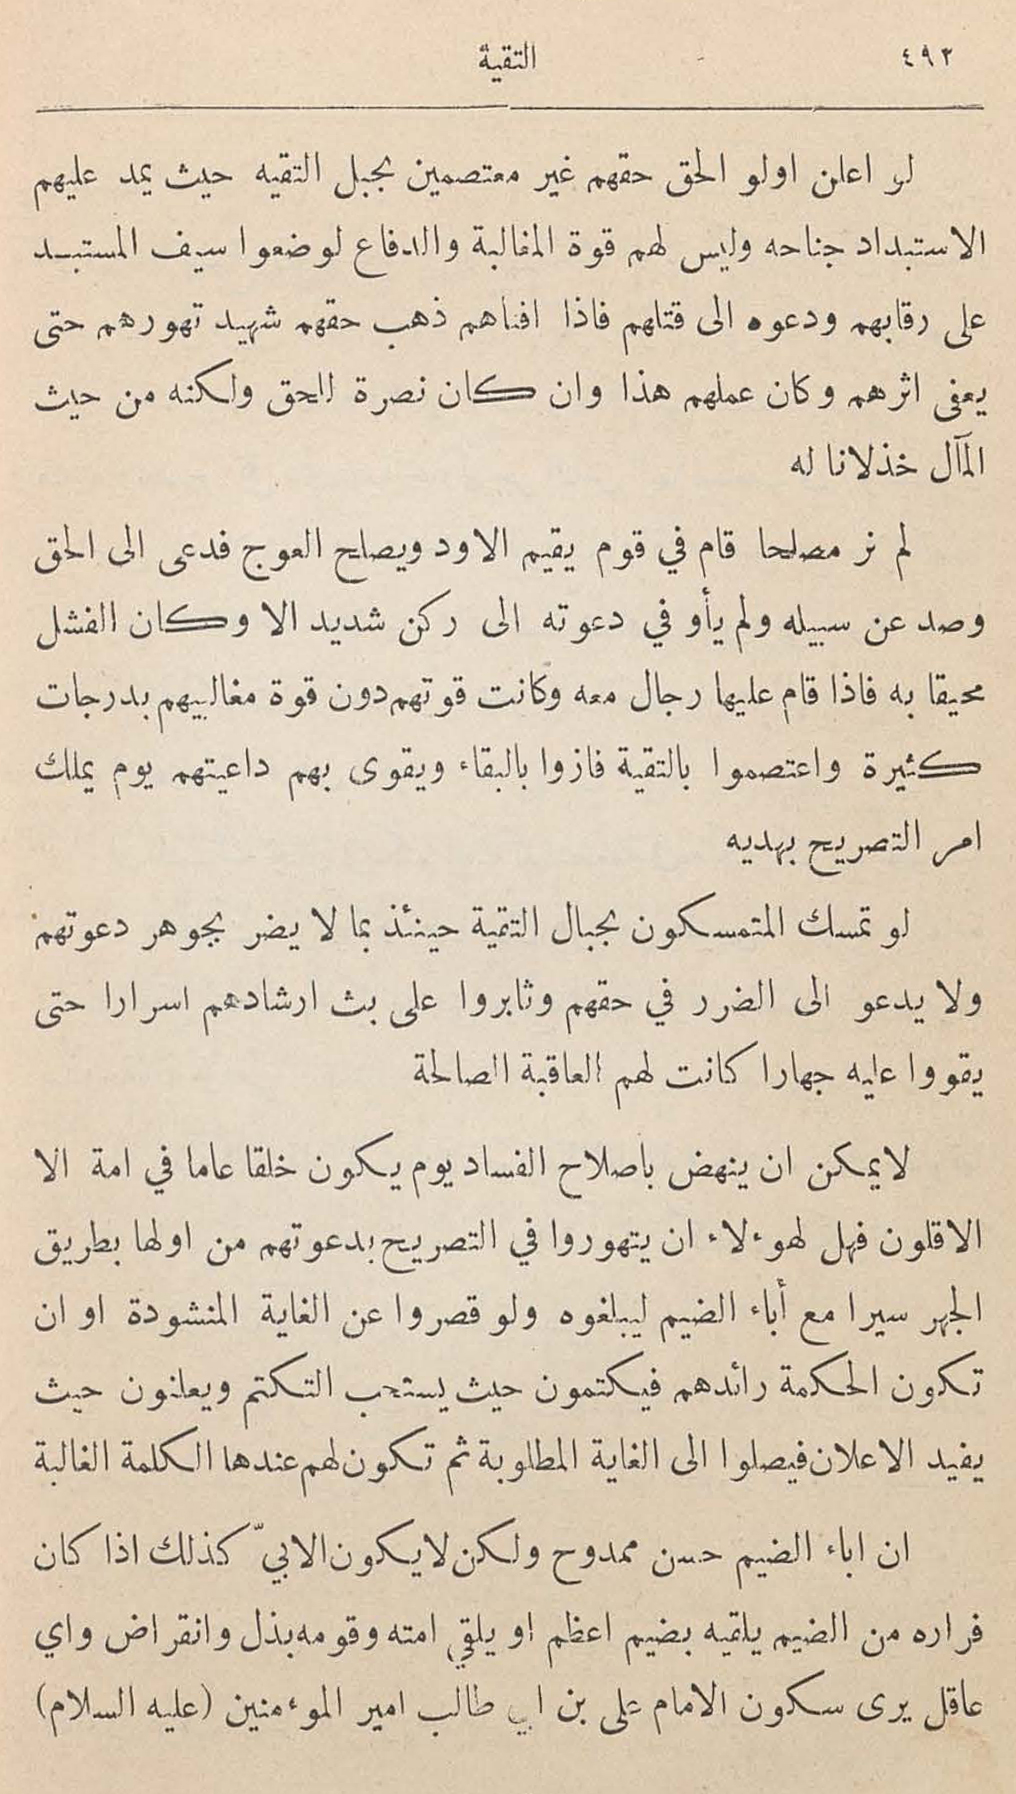 ٤٩٢ التقية
لو اعلن اولو الحق حقهم غير معتصمين بحبل التقيه حيث يمد عليهم
الاستبداد جناحه وليس لهم قوة المغالبة والدفاع لوضعوا سيف المستبد
على رقابهم ودعوه الى قتلهم فاذا افناهم ذهب حقهم شهيد تهورهم حتى
يعفى اثرهم وكان عملهم هذا وان كان نصرة للحق ولكنه من حيث
المآل خذلانا له
لم نر مصلحا قام في قوم يقيم الاود ويصلح العوج فدعى الى الحق
وصد عن سبيله ولم يأو في دعوته الى ركن شديد الا وكان الفشل
محيقا به فاذا قام عليها رجال معه وكانت قوتهم دون قوة مغالبيهم بدرجات
كثيرة واعتصموا بالتقية فازوا بالبقاء ويقوى بهم داعيتهم يوم يملك
امر التصريح بهديه
لو تمسك المتمسكون بحبال التقية حينئذ بما لا يضر بجوهر دعوتهم
ولا يدعو الى الضرر في حقهم وثابروا على بث ارشادهم اسرارا حتى
يقووا عليه جهارا كانت لهم العاقبة الصالحة
لايمكن ان ينهض باصلاح الفساد يوم يكون خلقا عاما في امة الا
الاقلون فهل لهوءلاء ان يتهوروا في التصريح بدعوتهم من اولها بطريق
الجهر سيرا مع أباء الضيم ليبلغوه ولو قصروا عن الغاية المنشودة او ان
تكون الحكمة رائدهم فيكتمون حيث يستحب التكتم ويعلنون حيث
يفيد الاعلان فيصلوا الى الغاية المطلوبة ثم تكون لهم عندها الكلمة الغالبة
ان اباء الضيم حسن ممدوح ولكن لا يكون الابيّ كذلك اذا كان
فراره من الضيم يلقيه بضيم اعظم او يلقي امته وقومه بذل وانقراض واي
عاقل يرى سكون الامام علي بن ابي طالب امير الموءمنين (عليه السلام)